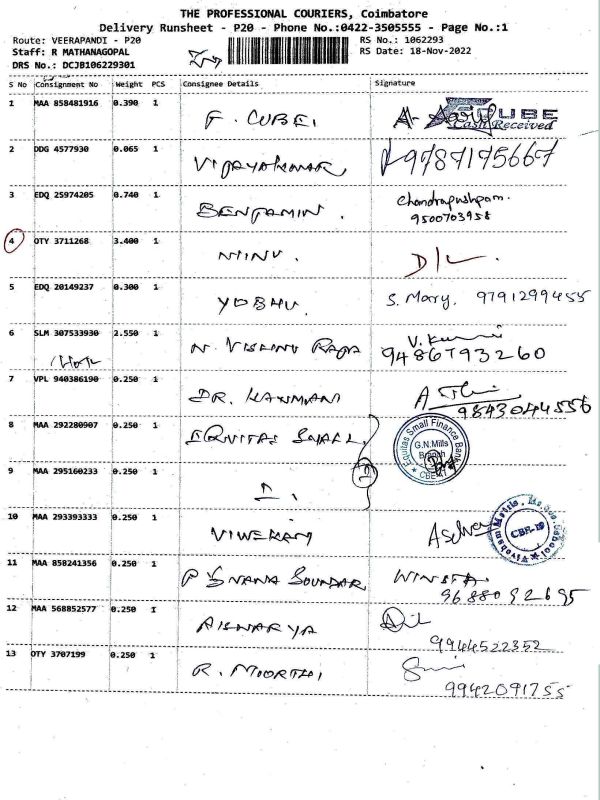 THE PROFESSIONAL COURIERS, Coimbatore
Delivery Runsheet - P20 - Phone No.:0422-3505555 - Page No.:1
Route: VEERAPANDI - P20 RS No.: 1062293
Staff: R MATHANAGOPAL RS Date: 18-Nov-2022
DRS No.: DCJB106229301
S No Consignment No Weight PCS Consignee Details Signature
1 MAA 858481916 0.390 1 F. CUBEI
Cash Received
2 DDG 4577930 0.065 1 VIJAYAKUMAR 9787175667
3 EDQ 25974205 0.740 1 BENJAMIN. Chandrapushpam.
9500703958
4 OTY 3711268 3.400 1 NINU. D/L.
5 EDQ 20149237 0.300 1 YOBHU. S. Mary. 9791299455
6 SLM 307533930 2.550 1 N. VISHNU RAJA V. Kumar
9486793260
7 VPL 940386190 0.250 1 DR. KANMANI
9843044556
8 MAA 292280907 0.250 1 EQUITAS SMALL
Equitas Small Finance Bank
G.N.Mills
Branch
CBE
9 MAA 295160233 0.250 1
10 MAA 293393333 0.250 1 VIVEKAM Aselva
CBE-19
11 MAA 858241356 0.250 1 P GNANA SOUNDAR
12 MAA 568852577 0.250 1 AISWARYA
9944522352
13 OTY 3707199 0.250 1 R. MOORTHI
9942091755